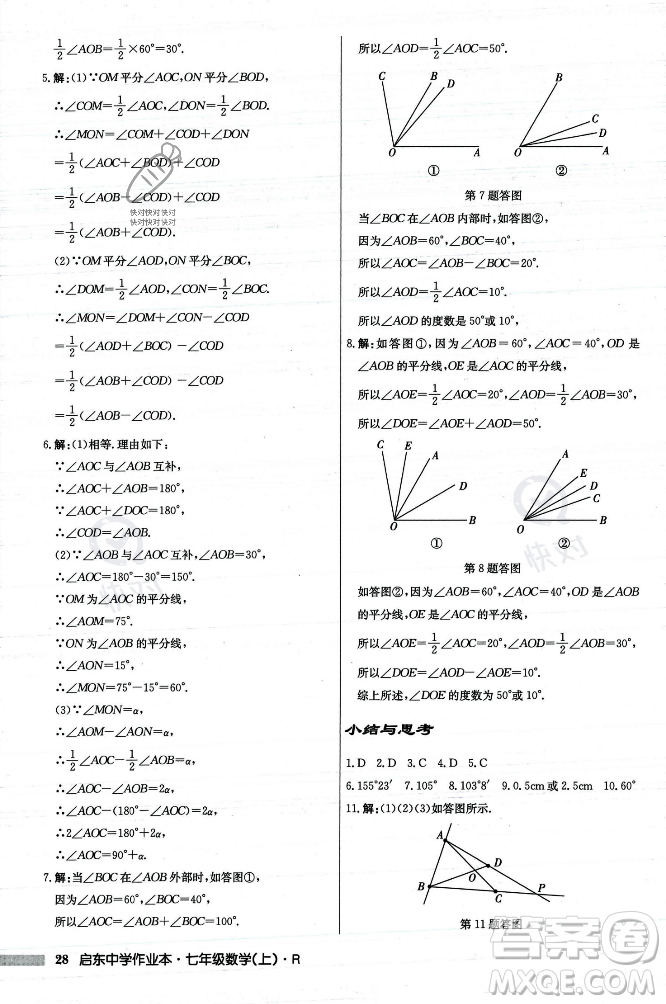 1/2∠AOB=1/2×60°=30°.
5.解:(1)∵OM平分∠AOC,ON平分∠BOD,
∴∠COM=1/2∠AOC,∠DON=1/2∠BOD.
∴∠MON=∠COM+∠COD+∠DON
=1/2(∠AOC+∠BOD)+∠COD
=1/2(∠AOB-∠COD)+∠COD
=1/2(∠AOB+∠COD).
(2)∵OM平分∠AOD,ON平分∠BOC,
∴∠DOM=1/2∠AOD,∠CON=1/2∠BOC.
∴∠MON=∠DOM+∠CON-∠COD
=1/2(∠AOD+∠BOC)-∠COD
=1/2(∠AOB+∠COD)-∠COD
=1/2(∠AOB-∠COD).
6.解:(1)相等.理由如下:
∵∠AOC与∠AOB互补,
∴∠AOC+∠AOB=180°,
∵∠AOC+∠DOC=180°,
∴∠COD=∠AOB.
(2)∵∠AOC与∠AOB互补,∠AOB=30°,
∴∠AOC=180°-30°=150°.
∵OM为∠AOC的平分线,
∴∠AOM=75°.
∵ON为∠AOB的平分线,
∴∠AON=15°,
∴∠MON=75°-15°=60°.
(3)∵∠MON=α,
∴∠AOM-∠AON=α,
∴1/2∠AOC-1/2∠AOB=α,
∴∠AOC-∠AOB=2α,
∴∠AOC+∠AOB=180°,
∴2∠AOC=180°+2α,
∴∠AOC=90°+α.
7.解:当∠BOC在∠AOB外部时,如答图①,
因为∠AOB=60°,∠BOC=40°,
所以∠AOC=∠AOB+∠BOC=100°.
28 启东中学作业本·七年级数学(上)·R
所以∠AOD=1/2∠AOC=50°.
C B D O A ①
B C D O A ②
第7题答图
当∠BOC在∠AOB内部时,如答图②,
因为∠AOB=60°,∠BOC=40°,
所以∠AOC=∠AOB-∠BOC=20°.
所以∠AOD=1/2∠AOC=10°.
所以∠AOD的度数是50°或10°.
8.解:如答图①,∠AOB=60°,∠AOC=40°,OD是∠AOB
的平分线,OE是∠AOC的平分线,
所以∠AOE=1/2∠AOC=20°,∠AOD=1/2∠AOB=30°.
所以∠DOE=∠AOE+∠AOD=50°.
C E A D O B ①
A E D C O B ②
第8题答图
如答图②,∠AOB=60°,∠AOC=40°,OD是∠AOB
的平分线,OE是∠AOC的平分线,
所以∠AOE=1/2∠AOC=20°,∠AOD=1/2∠AOB=30°.
所以∠DOE=∠AOD-∠AOE=10°.
综上所述,∠DOE的度数是50°或10°.
小结与思考
1.D 2.D 3.C 4.D 5.C
6.155°23′ 7.105° 8.103°8′ 9.0.5cm或2.5cm 10.60°
11.解:(1)(2)(3)如答图所示.
A D O B C P
第11题答图
快对快对快对
快对快对快对
快对
快对
答案圈
MXQE.COM